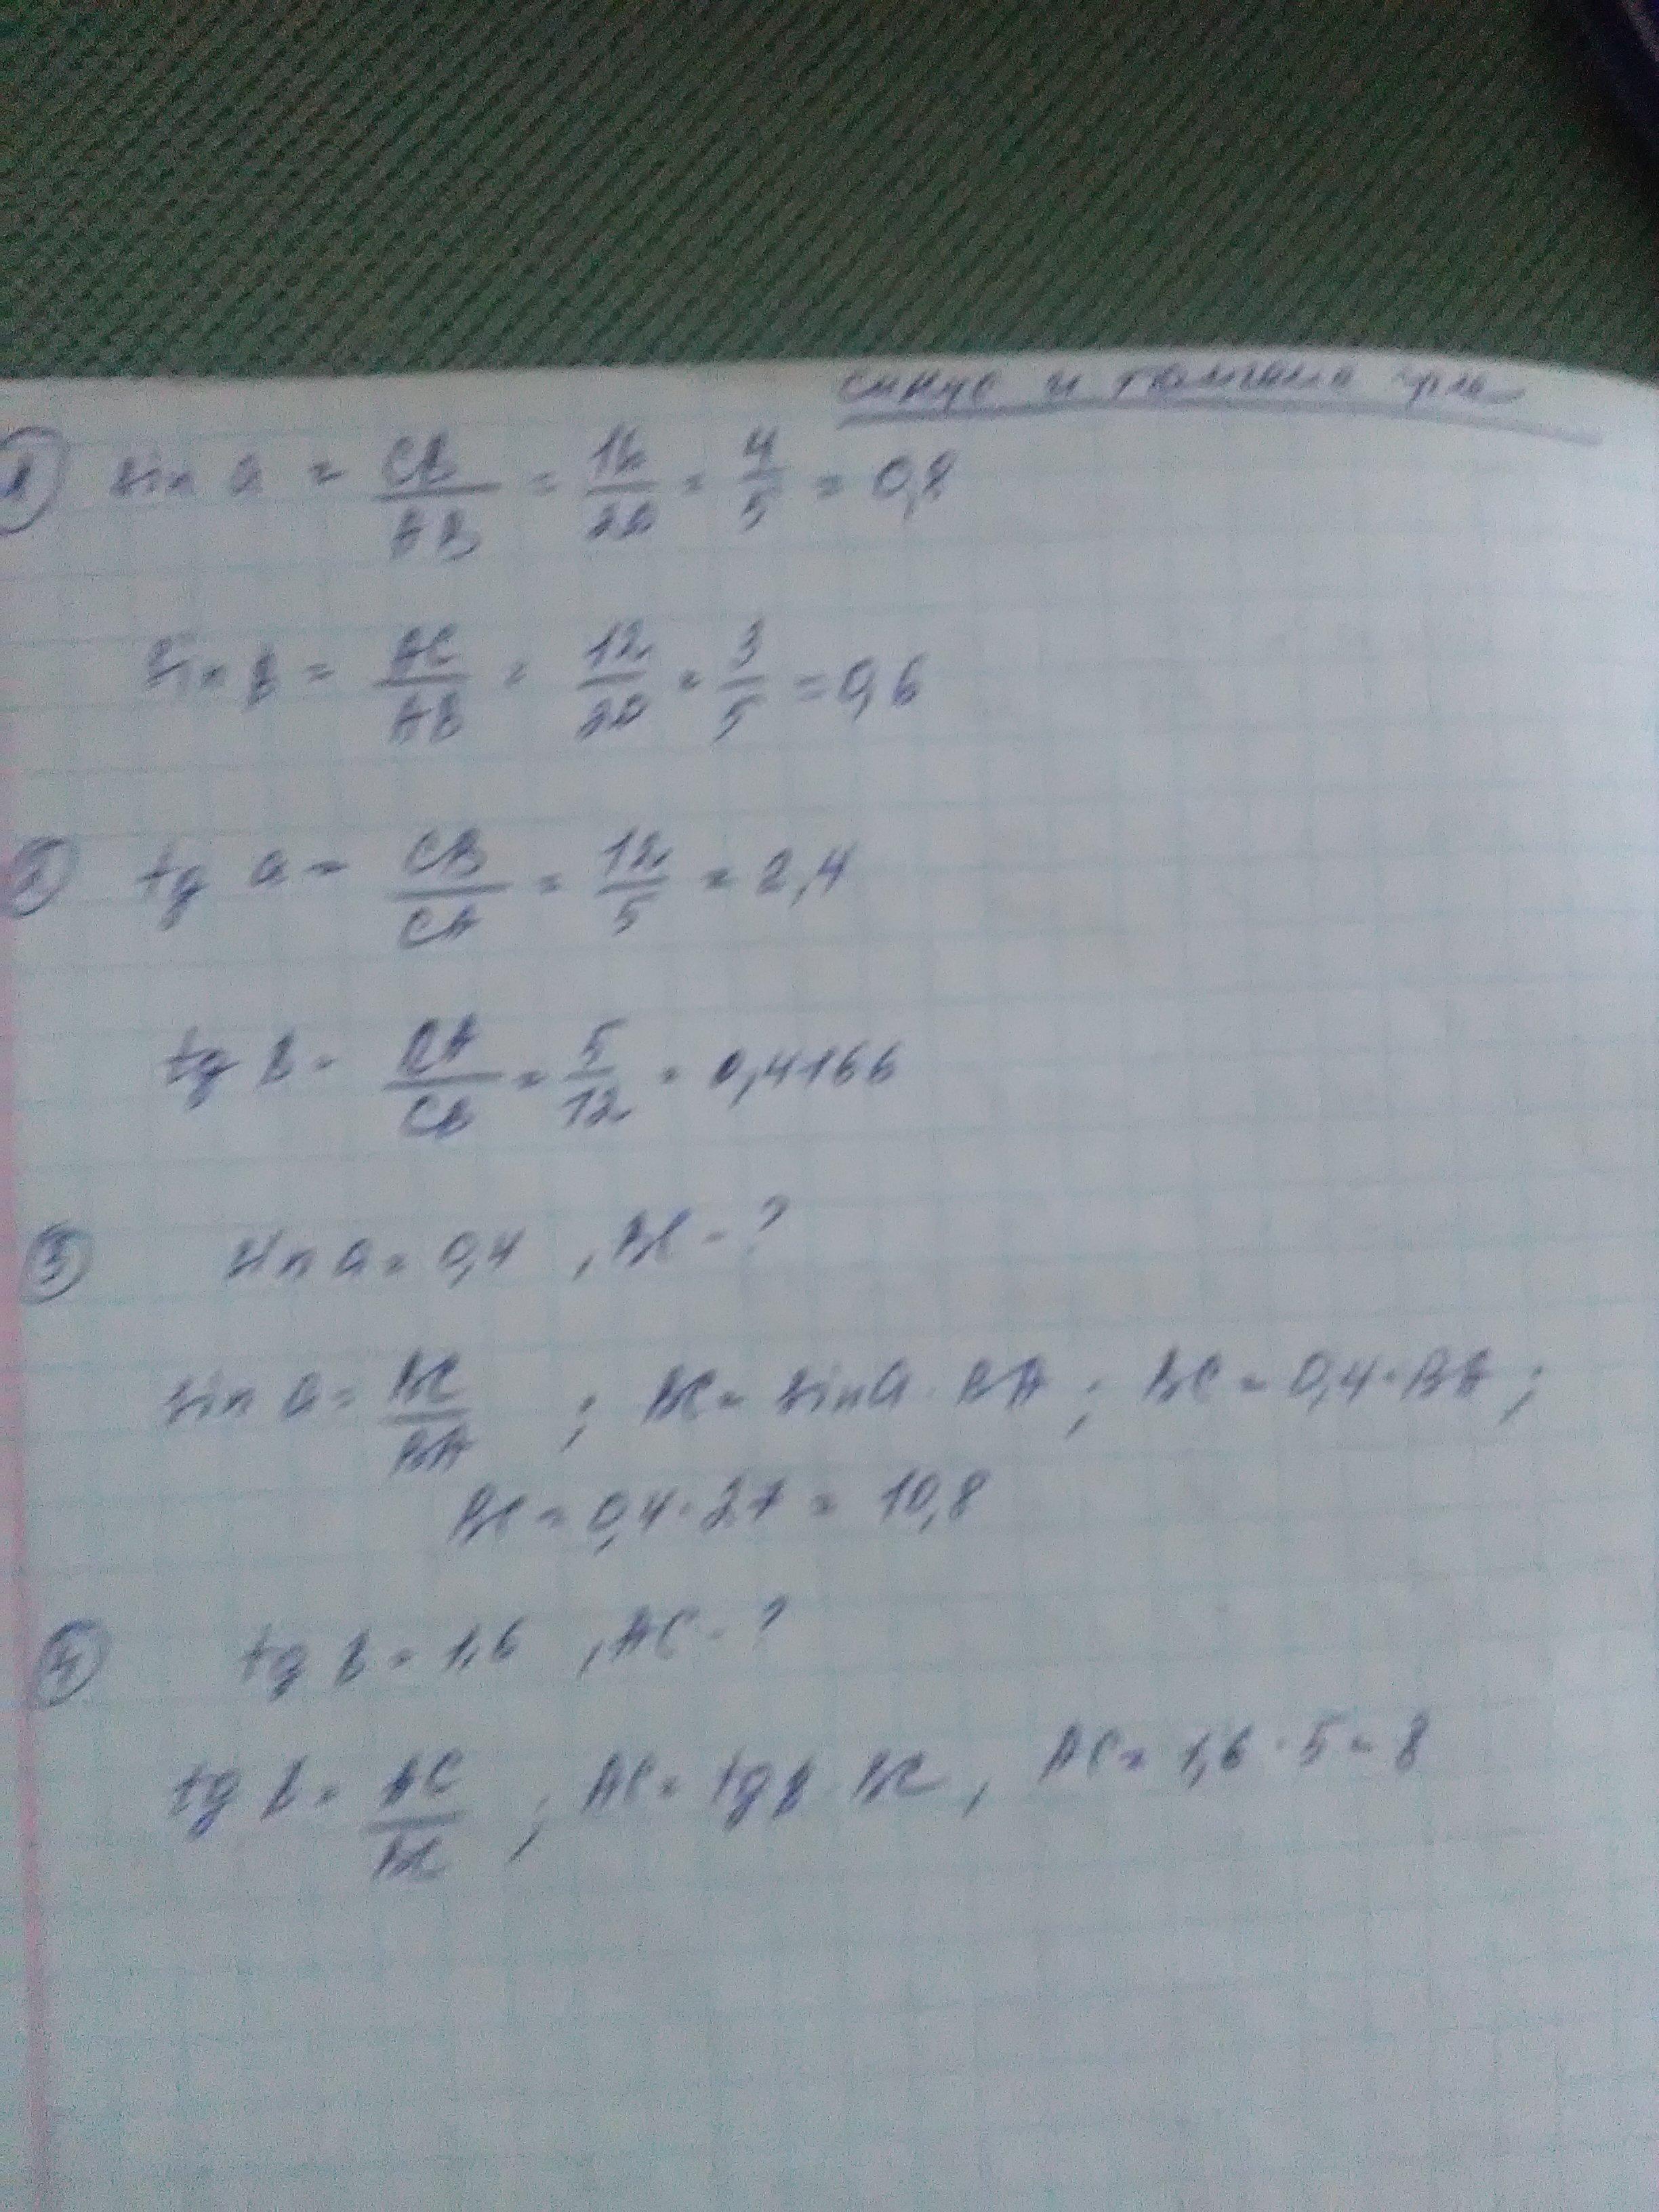 синус и тангенс угла
1 sin a = CB/AB = 16/20 = 4/5 = 0,8
sin B = AC/AB = 12/20 = 3/5 = 0,6
2 tg a = CB/CA = 12/5 = 2,4
tg B = CA/CB = 5/12 = 0,4166
3 sin a = 0,4 , BC - ?
sin a = BC/BA ; BC = sin a · BA ; BC = 0,4 · BA ;
BC = 0,4 · 27 = 10,8
4 tg B = 1,6 , AC - ?
tg B = AC/BC ; AC = tg B · BC , AC = 1,6 · 5 = 8